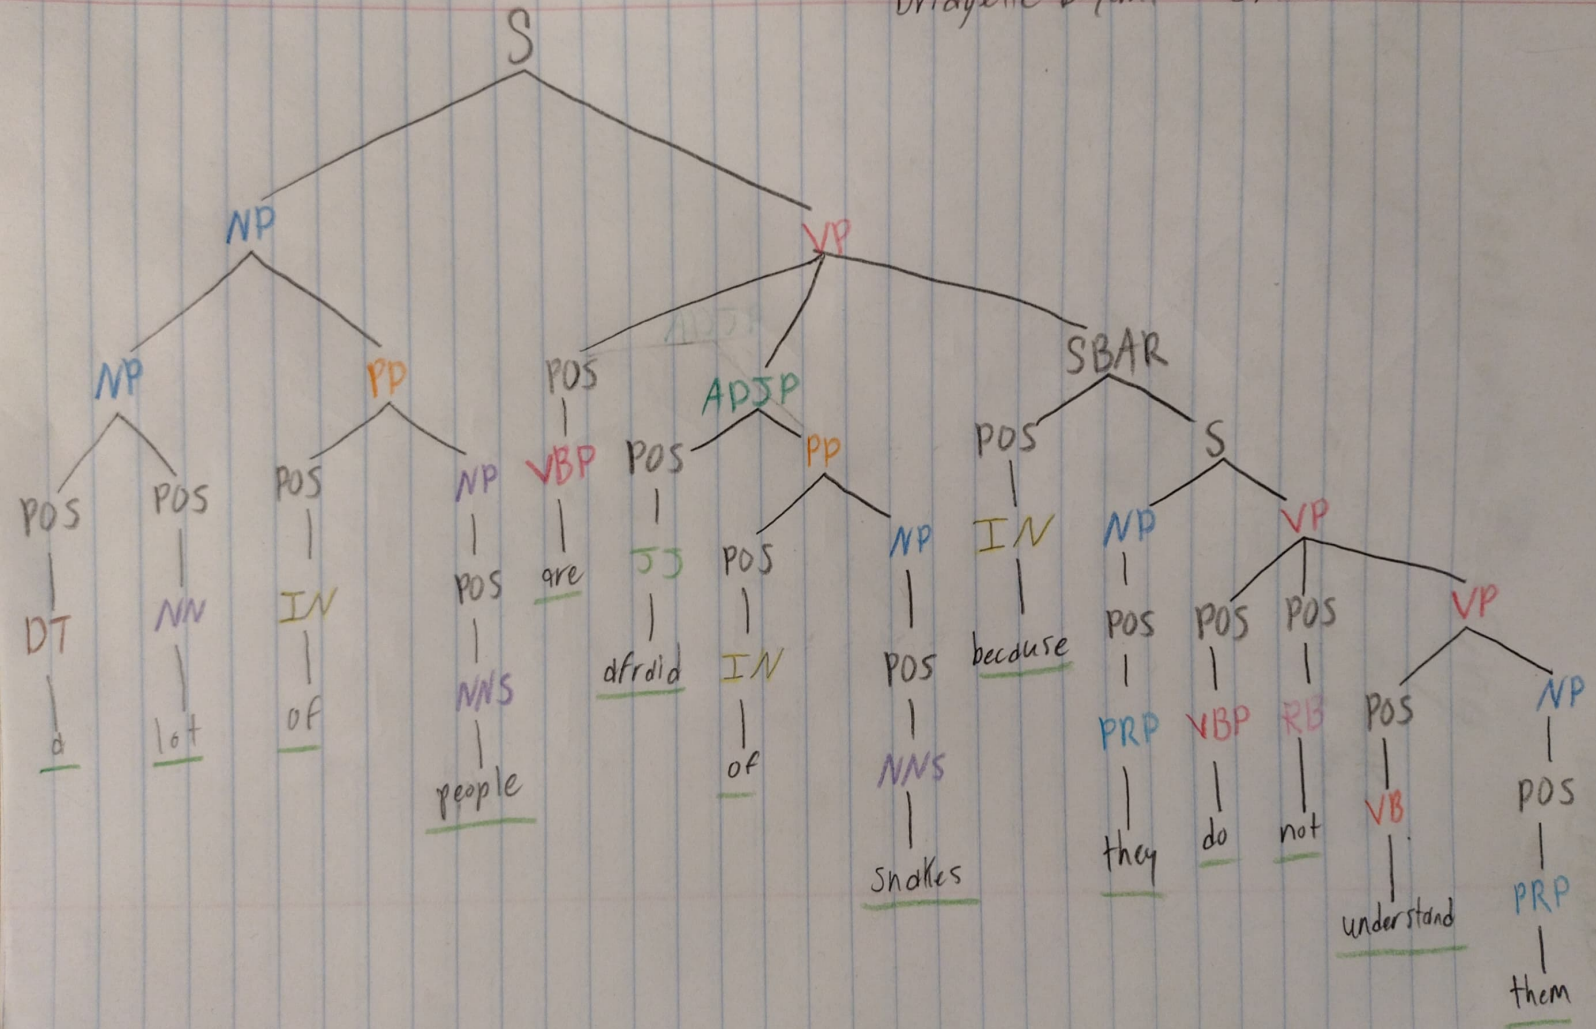 S
NP VP
NP PP POS ADJP SBAR
POS POS POS NP VBP POS PP POS S
DT NN IN POS are JJ POS NP IN NP VP
a lot of NNS afraid IN POS because POS POS POS VP
people of NNS PRP VBP RB POS NP
snakes they do not VB POS
understand PRP
them